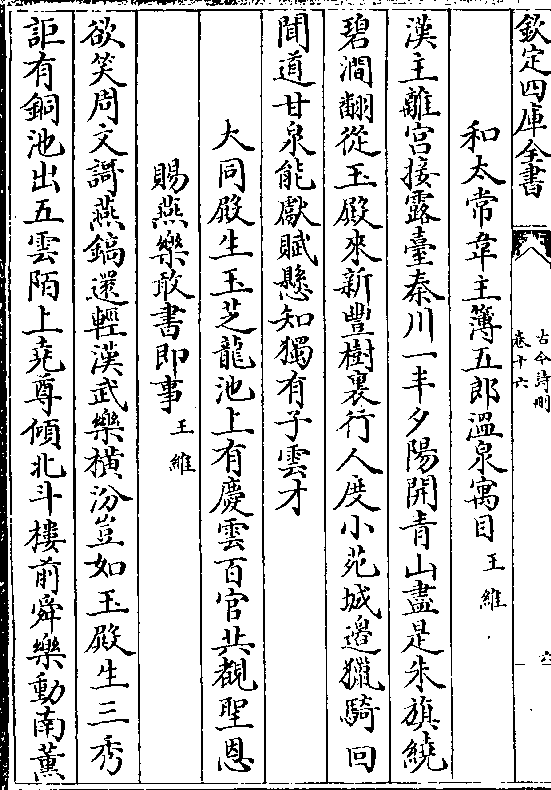 欽定四庫全書
古今詩刪
卷十六
六
和太常韋主簿五郎溫泉寓目 王維
漢主離宮接露臺秦川一半夕陽開青山盡是朱旗繞
碧澗翻從玉殿來新豐樹裏行人度小苑城邊獵騎回
聞道甘泉能獻賦懸知獨有子雲才
大同殿生玉芝龍池上有慶雲百官共觀聖恩
賜燕樂敢書即事 王維
欲笑周文謌燕鎬還輕漢武樂橫汾豈如玉殿生三秀
詎有銅池出五雲陌上堯尊傾北斗樓前舜樂動南薰